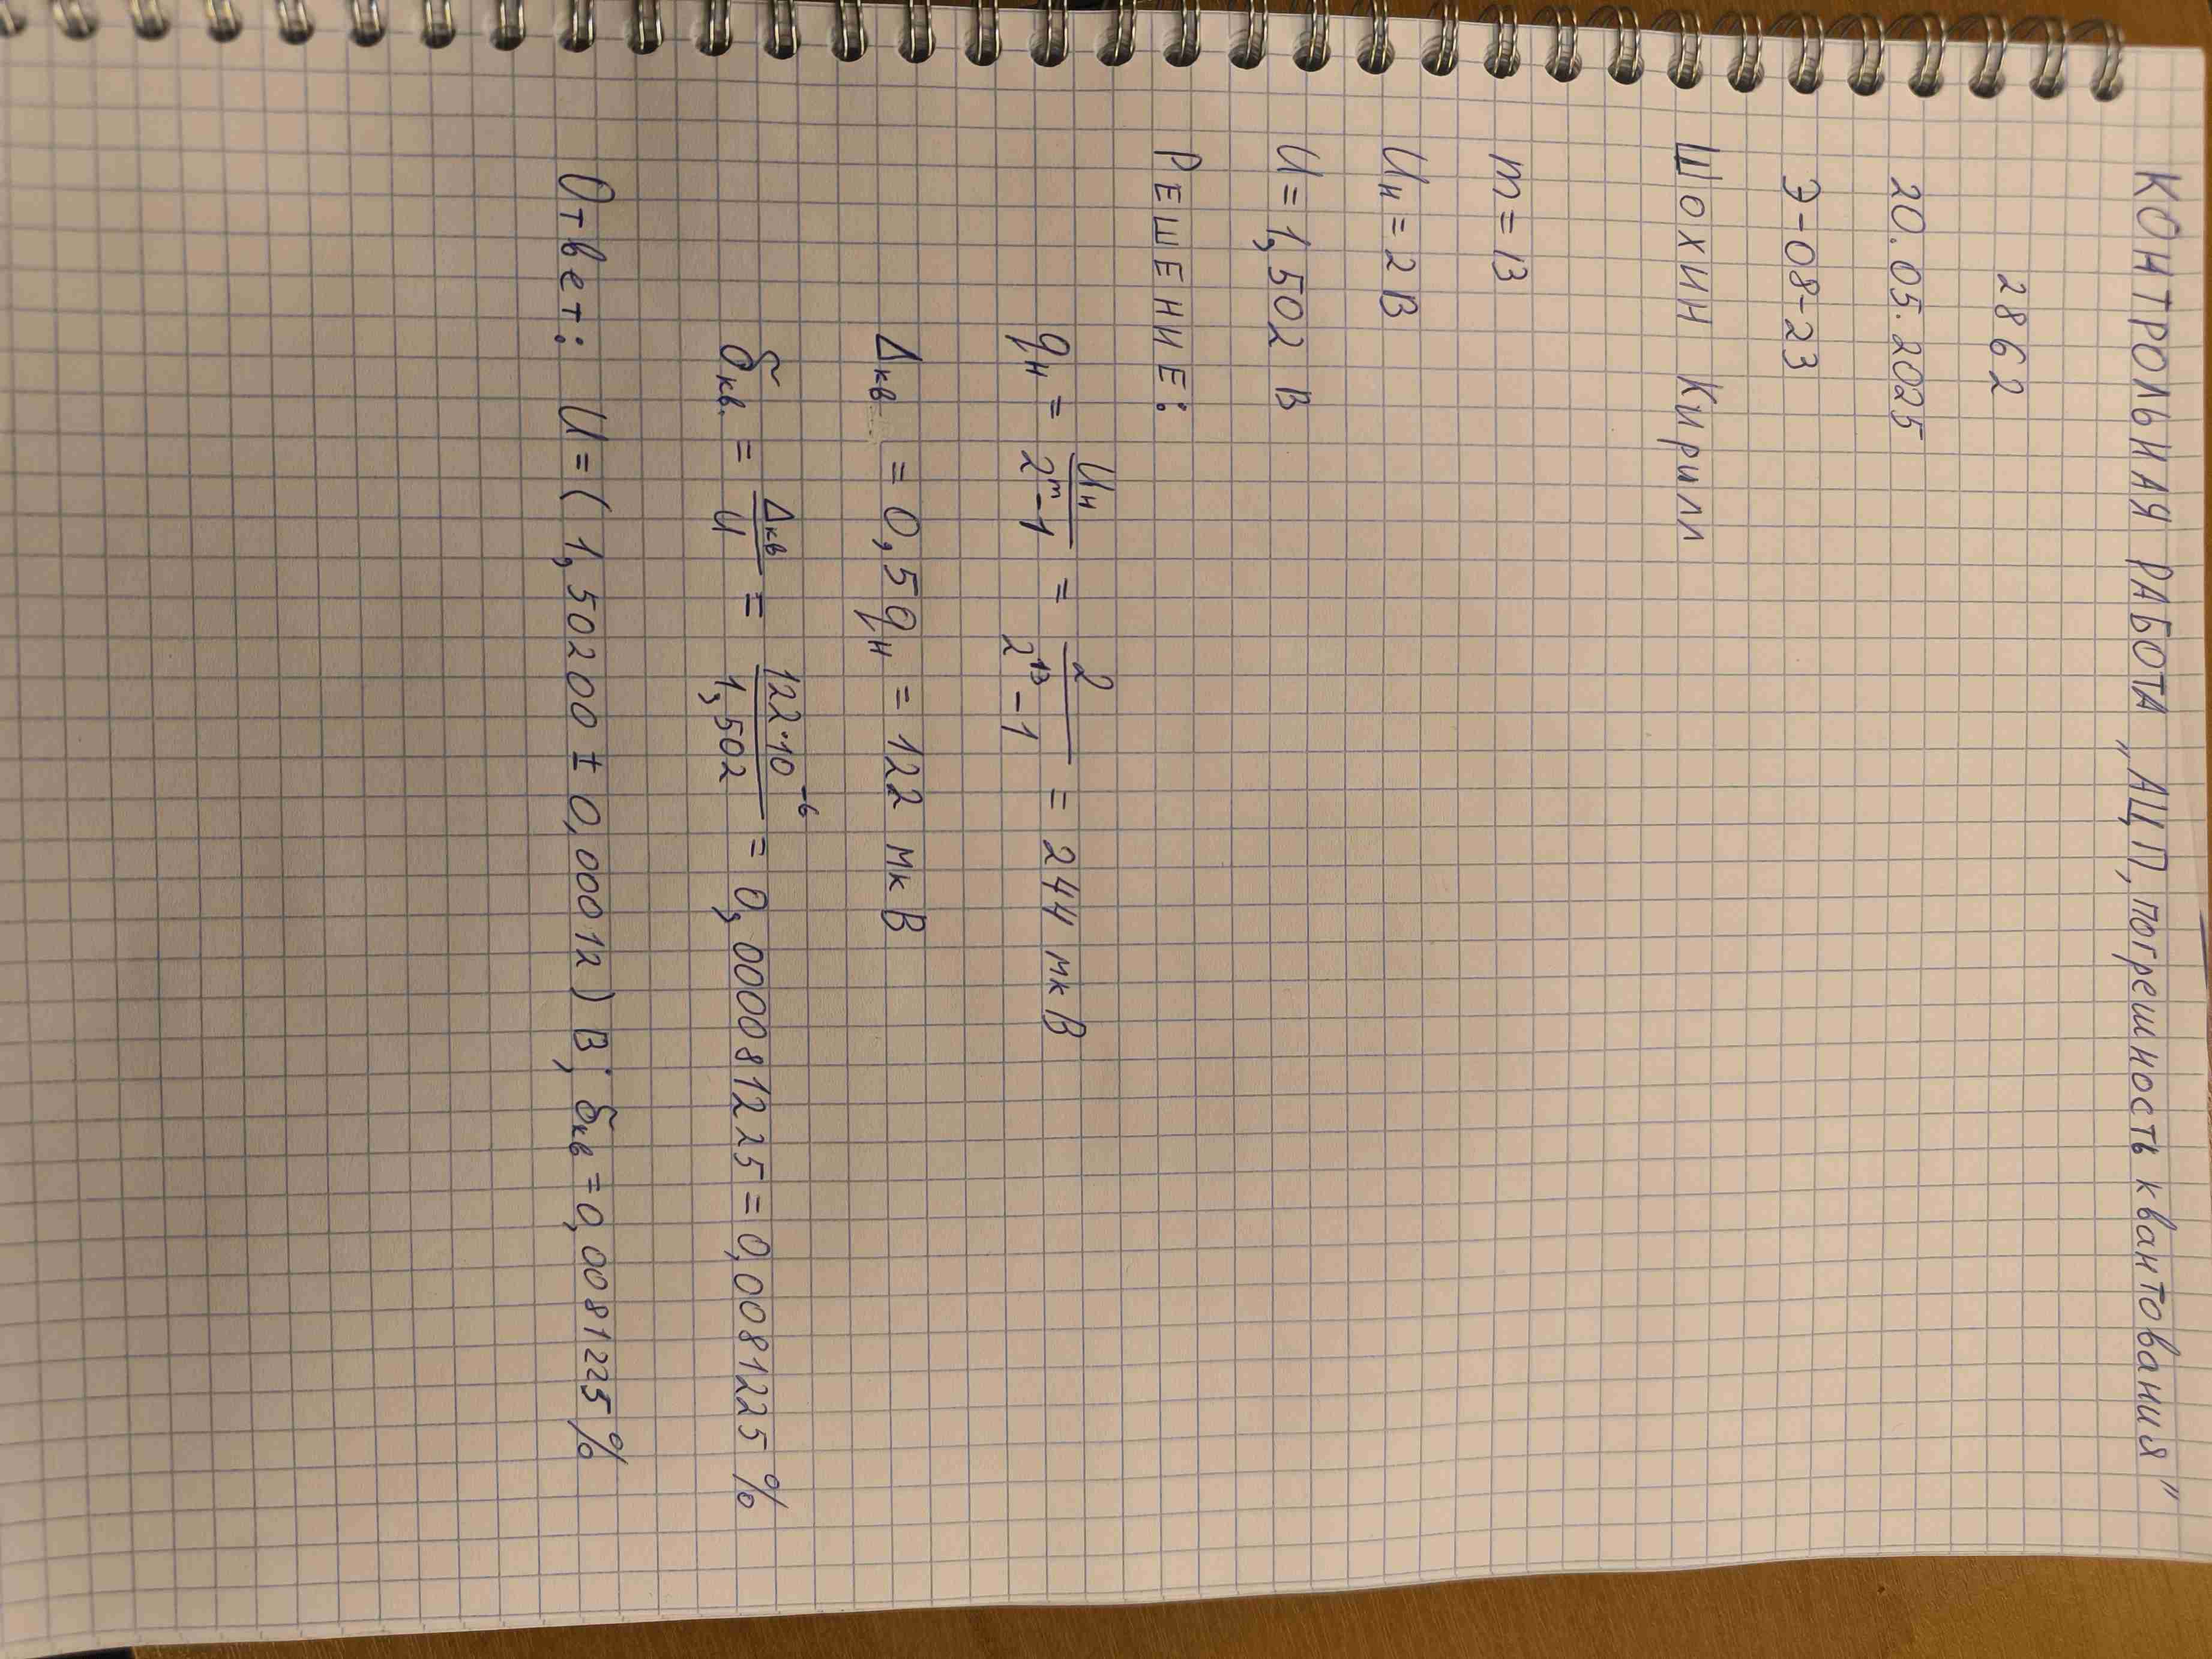 КОНТРОЛЬНАЯ РАБОТА „АЦП, погрешность квантования"
2862
20.05.2025
Э-08-23
Шохин Кирилл
m = 13
Uн = 2 В
U = 1,502 В
РЕШЕНИЕ:
qн = Uн / (2^m - 1) = 2 / (2^13 - 1) = 244 мк В
Δкв = 0,5 qн = 122 мк В
δкв. = Δкв / U = 122·10^-6 / 1,502 = 0,0000812225 = 0,0081225 %
Ответ: U = (1,50200 ± 0,00012) В; δкв = 0,0081225 %